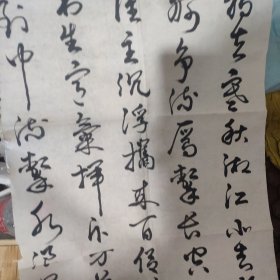 独立寒秋湘江北去
舸争流鹰擊长空
谁主沉浮携来百侣
书生意氣挥斥方
到中流擊水浪遏